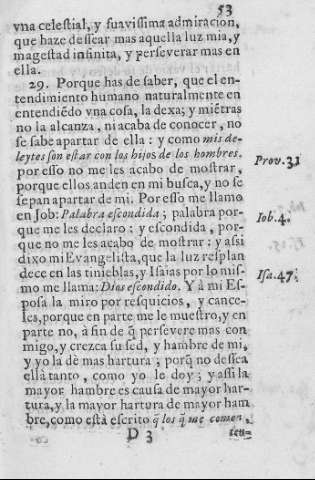 53
vna celestial, y suavissima admiracion,
que haze dessear mas aquella luz mia, y
magestad infinita, y perseverar mas en
ella.
29. Porque has de saber, que el en-
tendimiento humano naturalmente en
entendiẽdo vna cosa, la dexa; y miẽtras
no la alcanza, ni acaba de conocer, no
se sabe apartar de ella: y como mis de-
leytes son estar con los hijos de los hombres,
Prov. 31
por esso no me les acabo de mostrar,
porque ellos anden en mi busca, y no se
sepan apartar de mi. Por esso me llamo
en Job: Palabra escondida; palabra por-
Iob. 4.
que me les declaro: y escondida, por-
que no me les acabo de mostrar: y assi
dixo mi Evangelista, que la luz resplan
dece en las tinieblas, y Isaias por lo mis-
mo me llama: Dios escondido. Y à mi Es-
Isa. 47.
posa la miro por resquicios, y cance-
les, porque en parte me le muestro, y en
parte no, à fin de q̃ persevere mas con
migo, y crezca su sed, y hambre de mi,
y yo la dè mas hartura; porq̃ no dessea
ella tanto, como yo le doy; y assi la
mayor hambre es causa de mayor har-
tura, y la mayor hartura de mayor ham
bre, como està escrito q̃ los q̃ me comen,
D 3
ten-